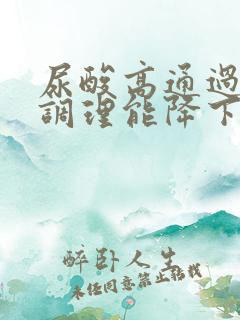 尿酸高通過
調理能降下
醉卧人生
未经同意禁止转载